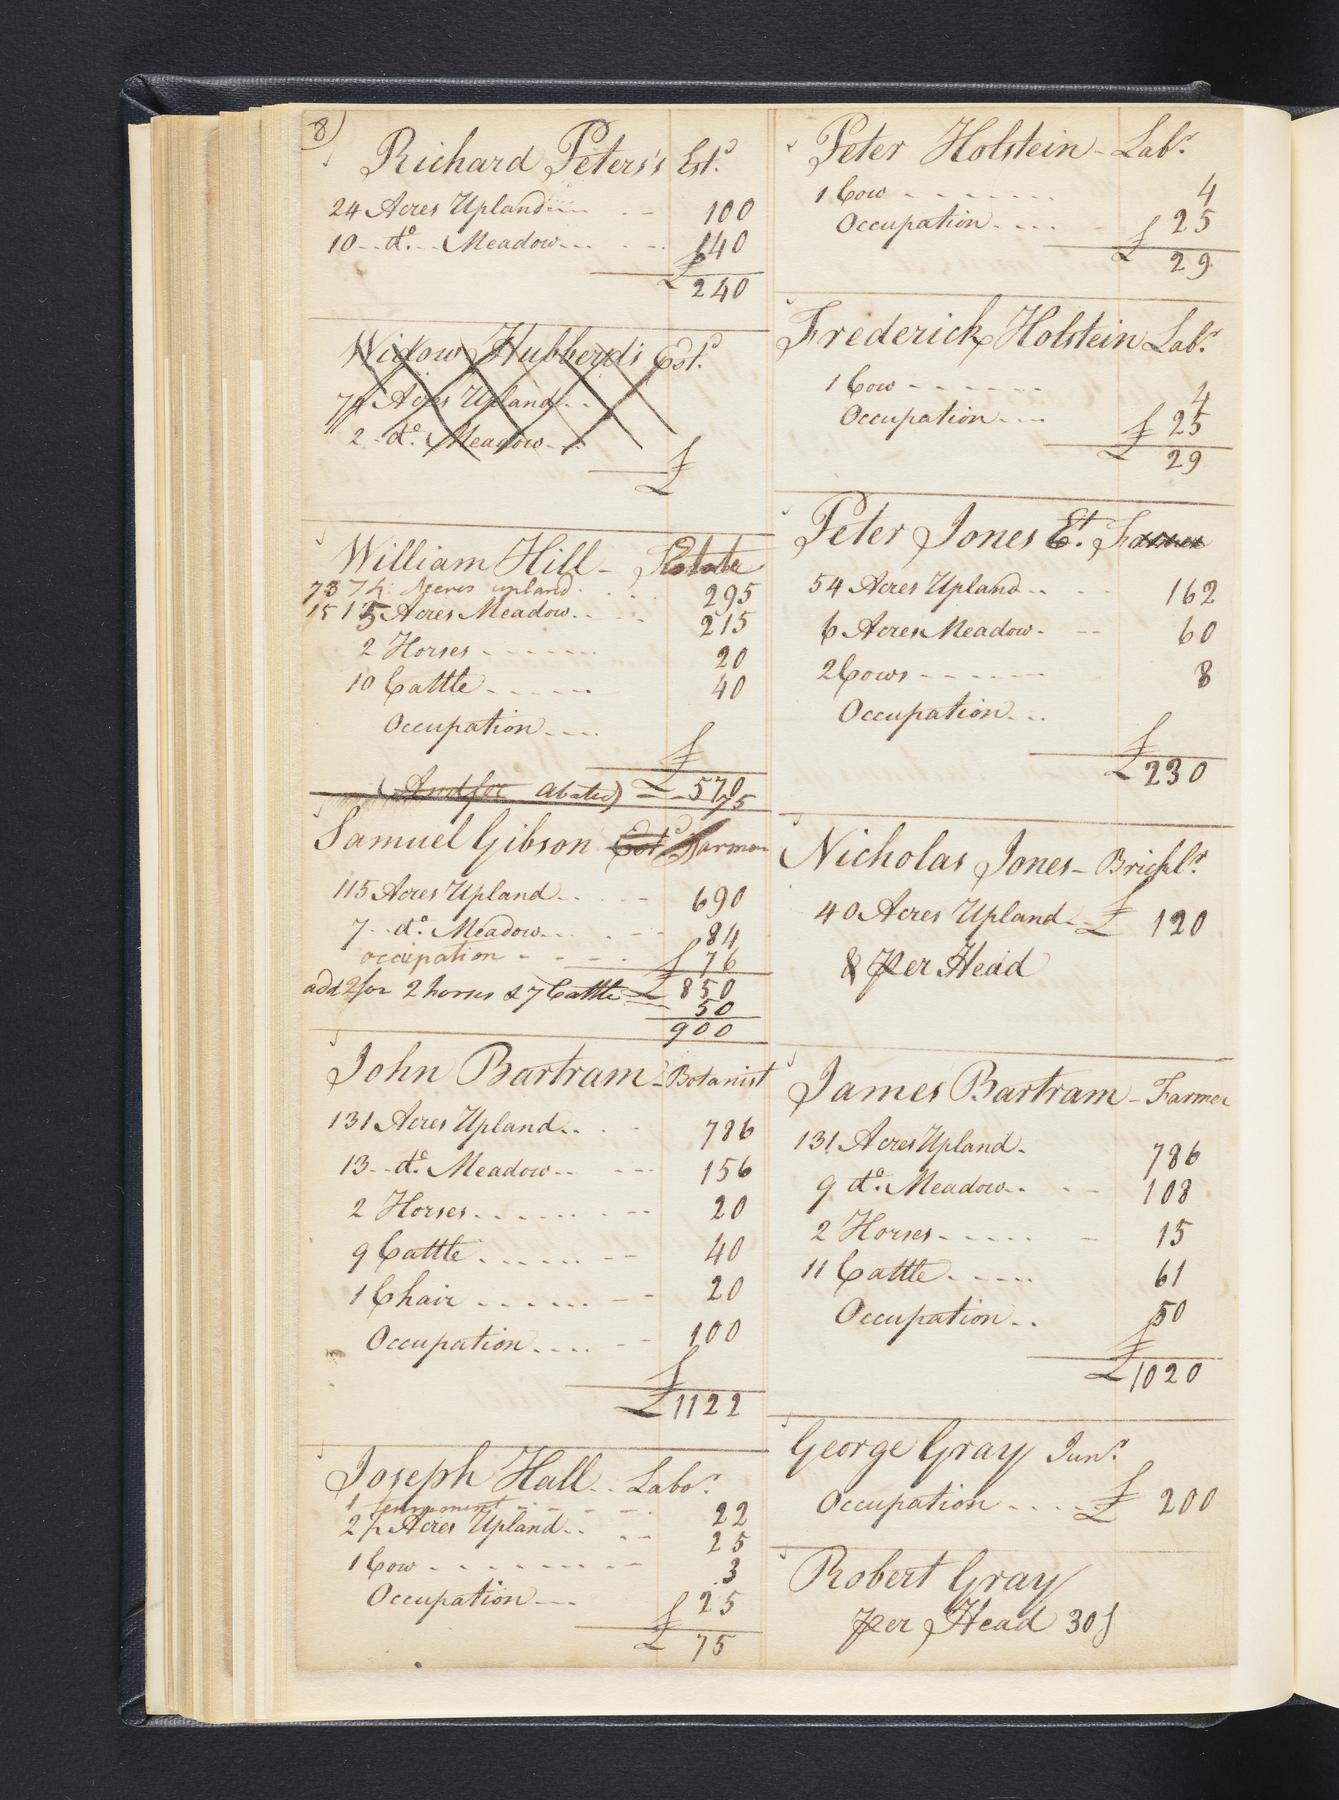 8)
Richard Peters's Est.d
24 Acres Upland 100
10 - do. - Meadow 140
£ 240
Widow Hubberd's Est.d
Acres Upland
2 - do. Meadow
£
William Hill - Estate
73 Acres upland 295
15 15 Acres Meadow 215
2 Horses 20
10 Cattle 40
Occupation
£ 570
abated) 75
Samuel Gibson Est.d Farmer
115 Acres Upland 690
7 - do. Meadow 84
occupation 76
£ 850
add for 2 horses & 7 Cattle 50
900
John Bartram - Botanist
131 Acres Upland 786
13 - do. Meadow 156
2 Horses 20
9 Cattle 40
1 Chair 20
Occupation 100
£ 1122
Joseph Hall - Labo.r
1 tennement 22
2½ Acres Upland 25
1 Cow 3
Occupation 25
£ 75
Peter Holstein - Lab.r
1 Cow 4
Occupation 25
£ 29
Frederick Holstein Lab.r
1 Cow 4
Occupation 25
£ 29
Peter Jones Et. Farmer
54 Acres Upland 162
6 Acres Meadow 60
2 Cows 8
Occupation
£ 230
Nicholas Jones - Brickl.r
40 Acres Upland £ 120
& Per Head
James Bartram - Farmer
131 Acres Upland 786
9 do. Meadow 108
2 Horses 15
11 Cattle 61
Occupation 50
£ 1020
George Gray Jun.r
Occupation £ 200
Robert Gray
Per Head 30s